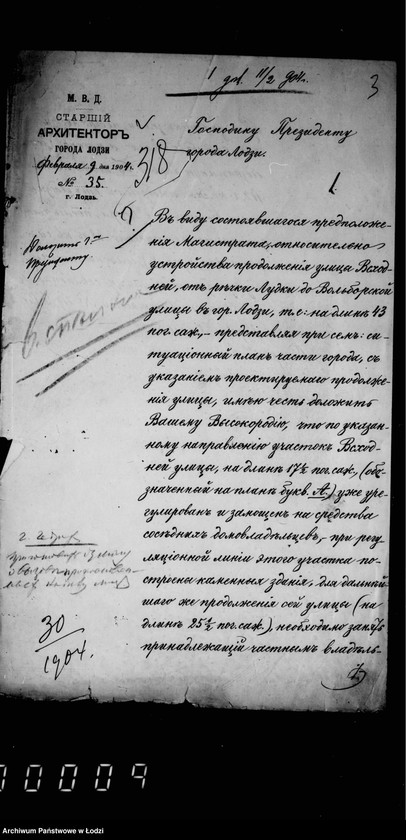 1 дов. 11/2 904 г.
3
М. В. Д.
СТАРШІЙ
АРХИТЕКТОРЪ
ГОРОДА ЛОДЗИ
Февраля 9 дня 1904 г.
№ 35.
г. Лодзь.
318
Господину Президенту
города Лодзи.
1
Въ виду состоявшагося предположе-
нія Магистрата, относительно
устройства продолженія улицы Всход-
ней, отъ рѣчки Лудки до Вольборской
улицы въ гор. Лодзи, т. е: на длинѣ 43
пог. саж., - представляя при семъ: си-
туаціонный планъ части города, съ
указаніемъ проектируемаго продолже-
нія улицы, имѣю честь доложить
Вашему Высокородію, что по указан-
ному направленію участокъ Всход-
ней улицы, на длинѣ 17½ пог. саж., (обо-
значенный на планѣ букв. А.) уже уре-
гулированъ и замощенъ на средства
сосѣднихъ домовладѣльцевъ, - при регу-
ляціонной линіи этого участка по-
строены каменныя зданія, для дальнѣй-
шаго же продолженія сей улицы (на
длинѣ 25½ пог. саж.), необходимо занять
принадлежащій частнымъ владѣль-
30
1904.
00009
Archiwum Państwowe w Łodzi